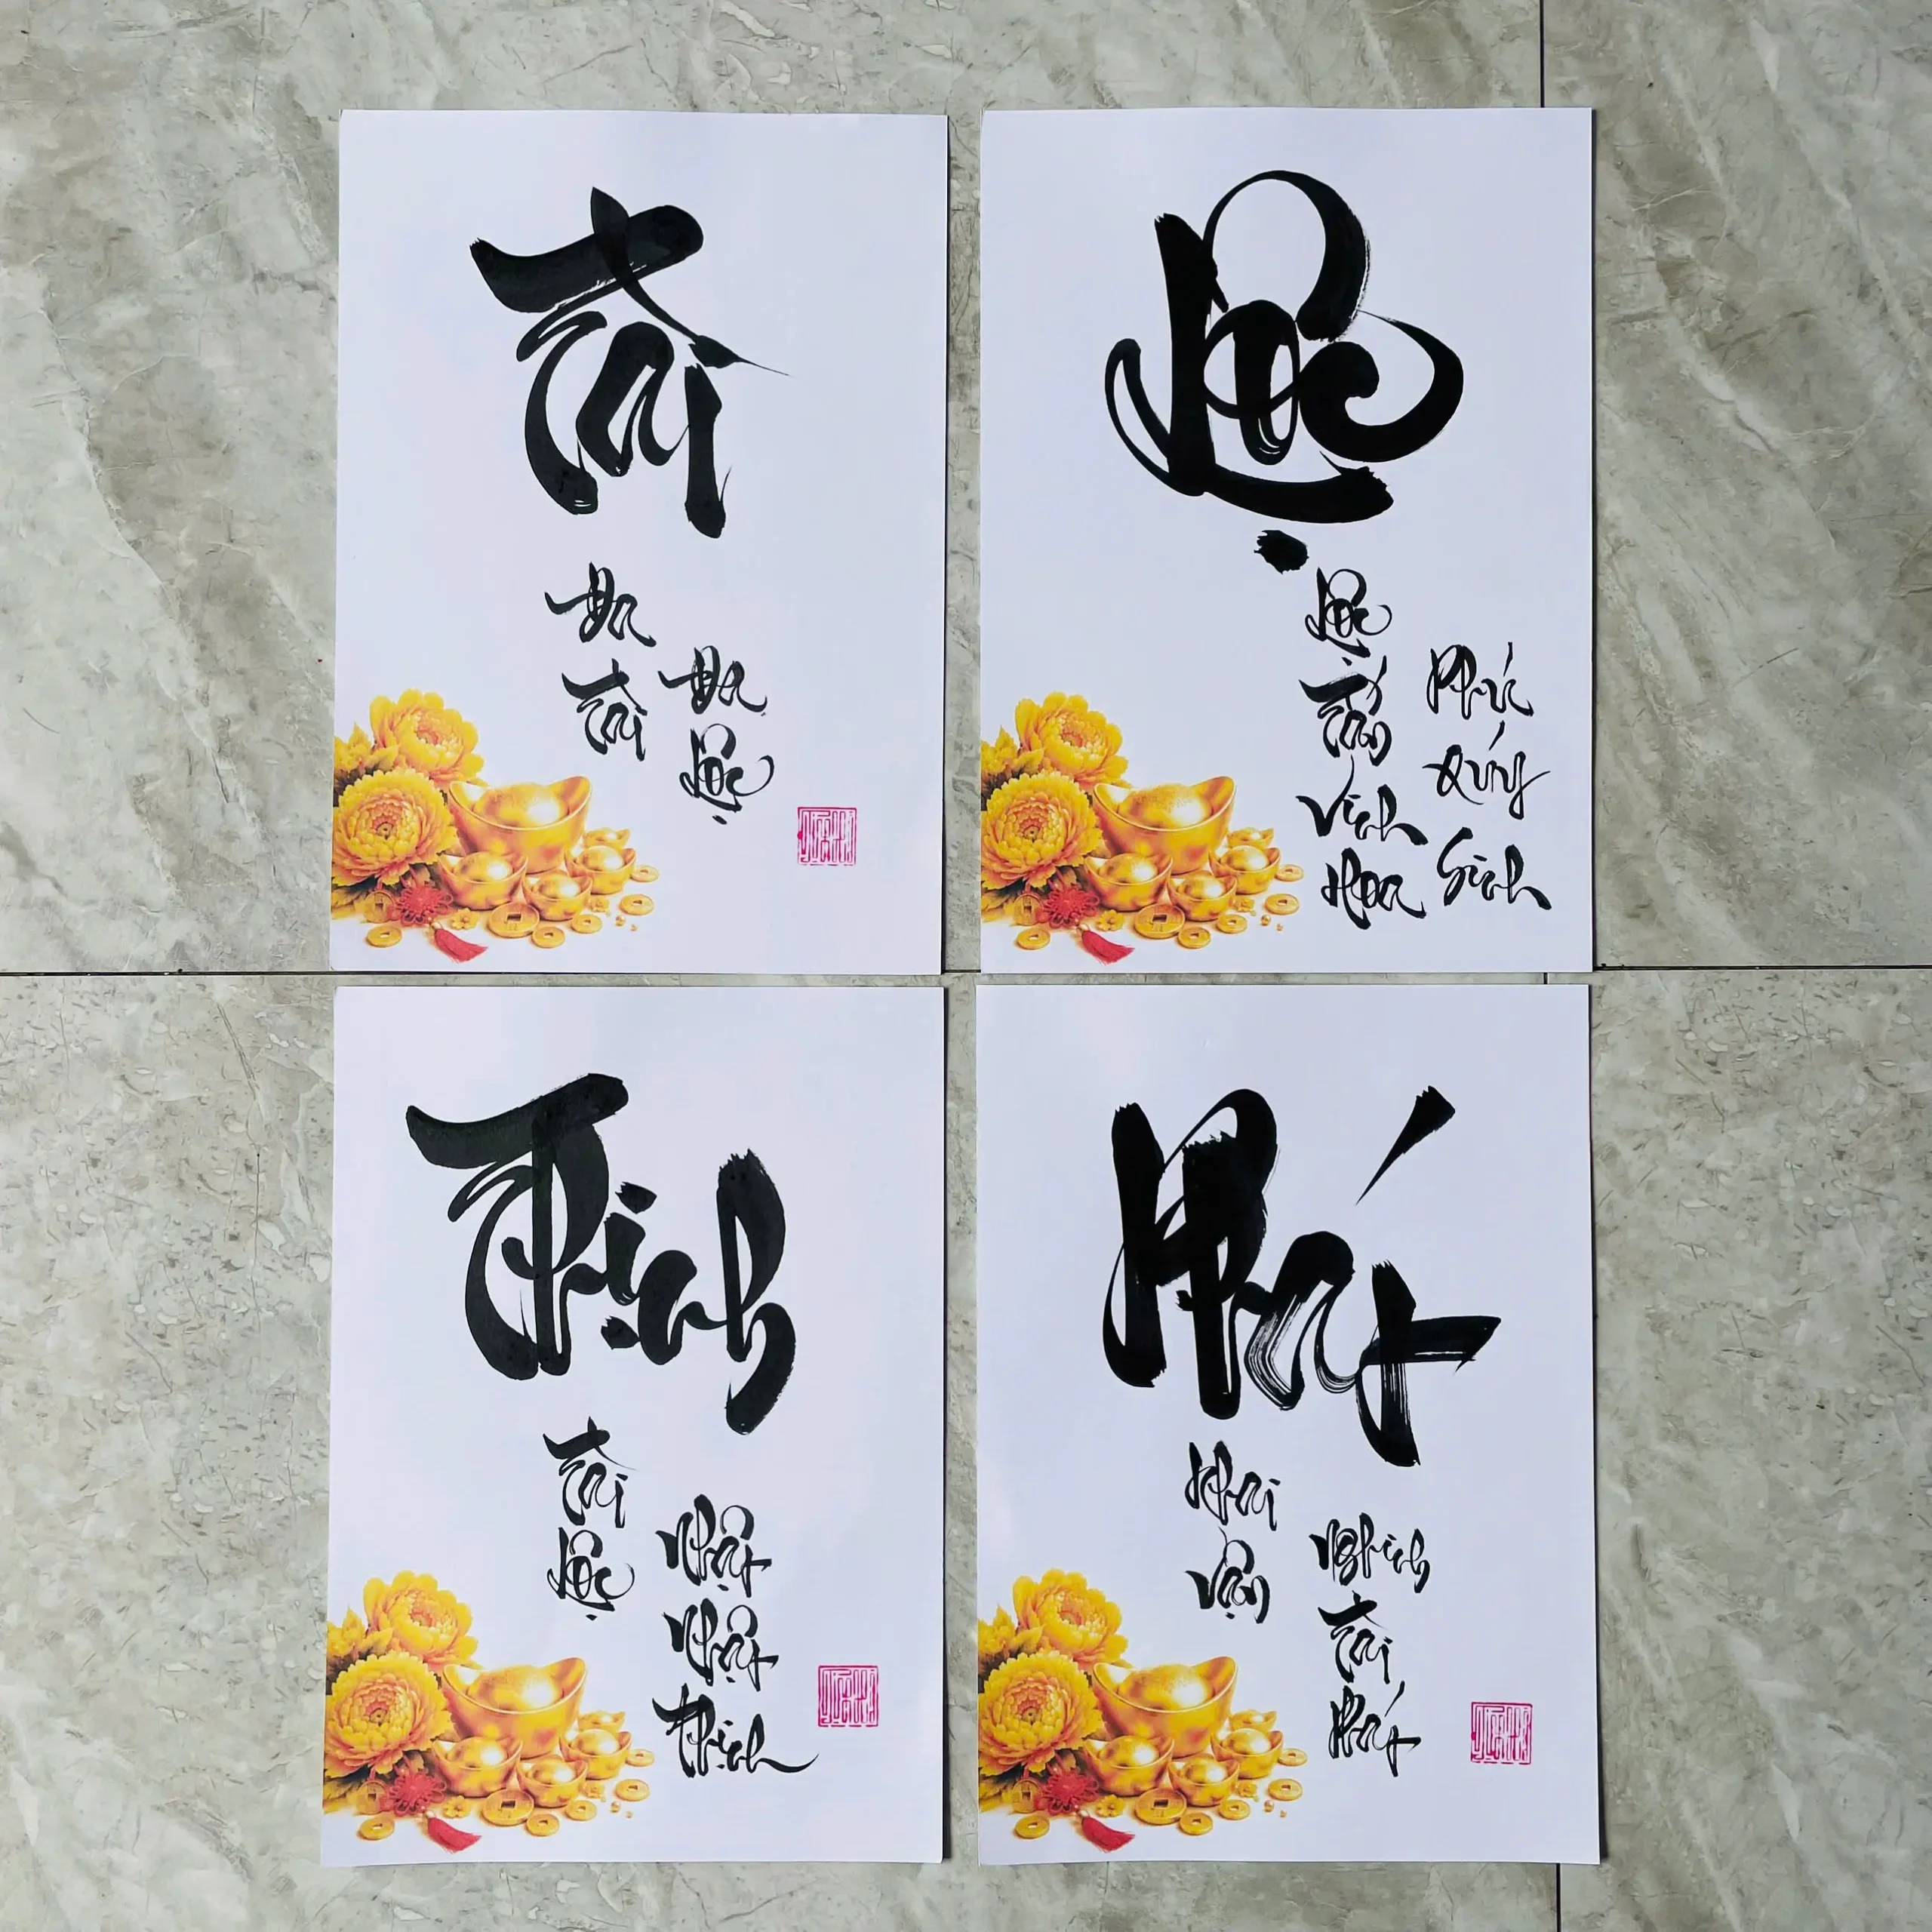 Tài
Đa Tài
Đa Lộc
Lộc
Lộc Tấn Vinh Hoa
Phú Quý Sinh
Thịnh
Tài Lộc
Nhật Nhật Thịnh
Phát
Khai Vận
Nghinh Tài Phát